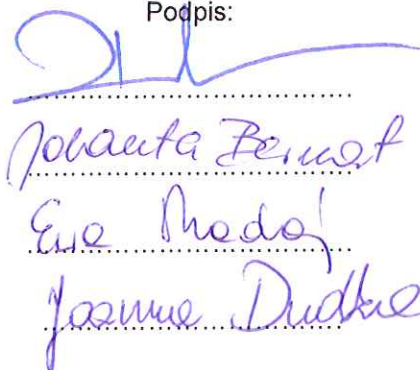 Podpis:
Jolanta Bernat
Ewa Madej
Joanna Dudka